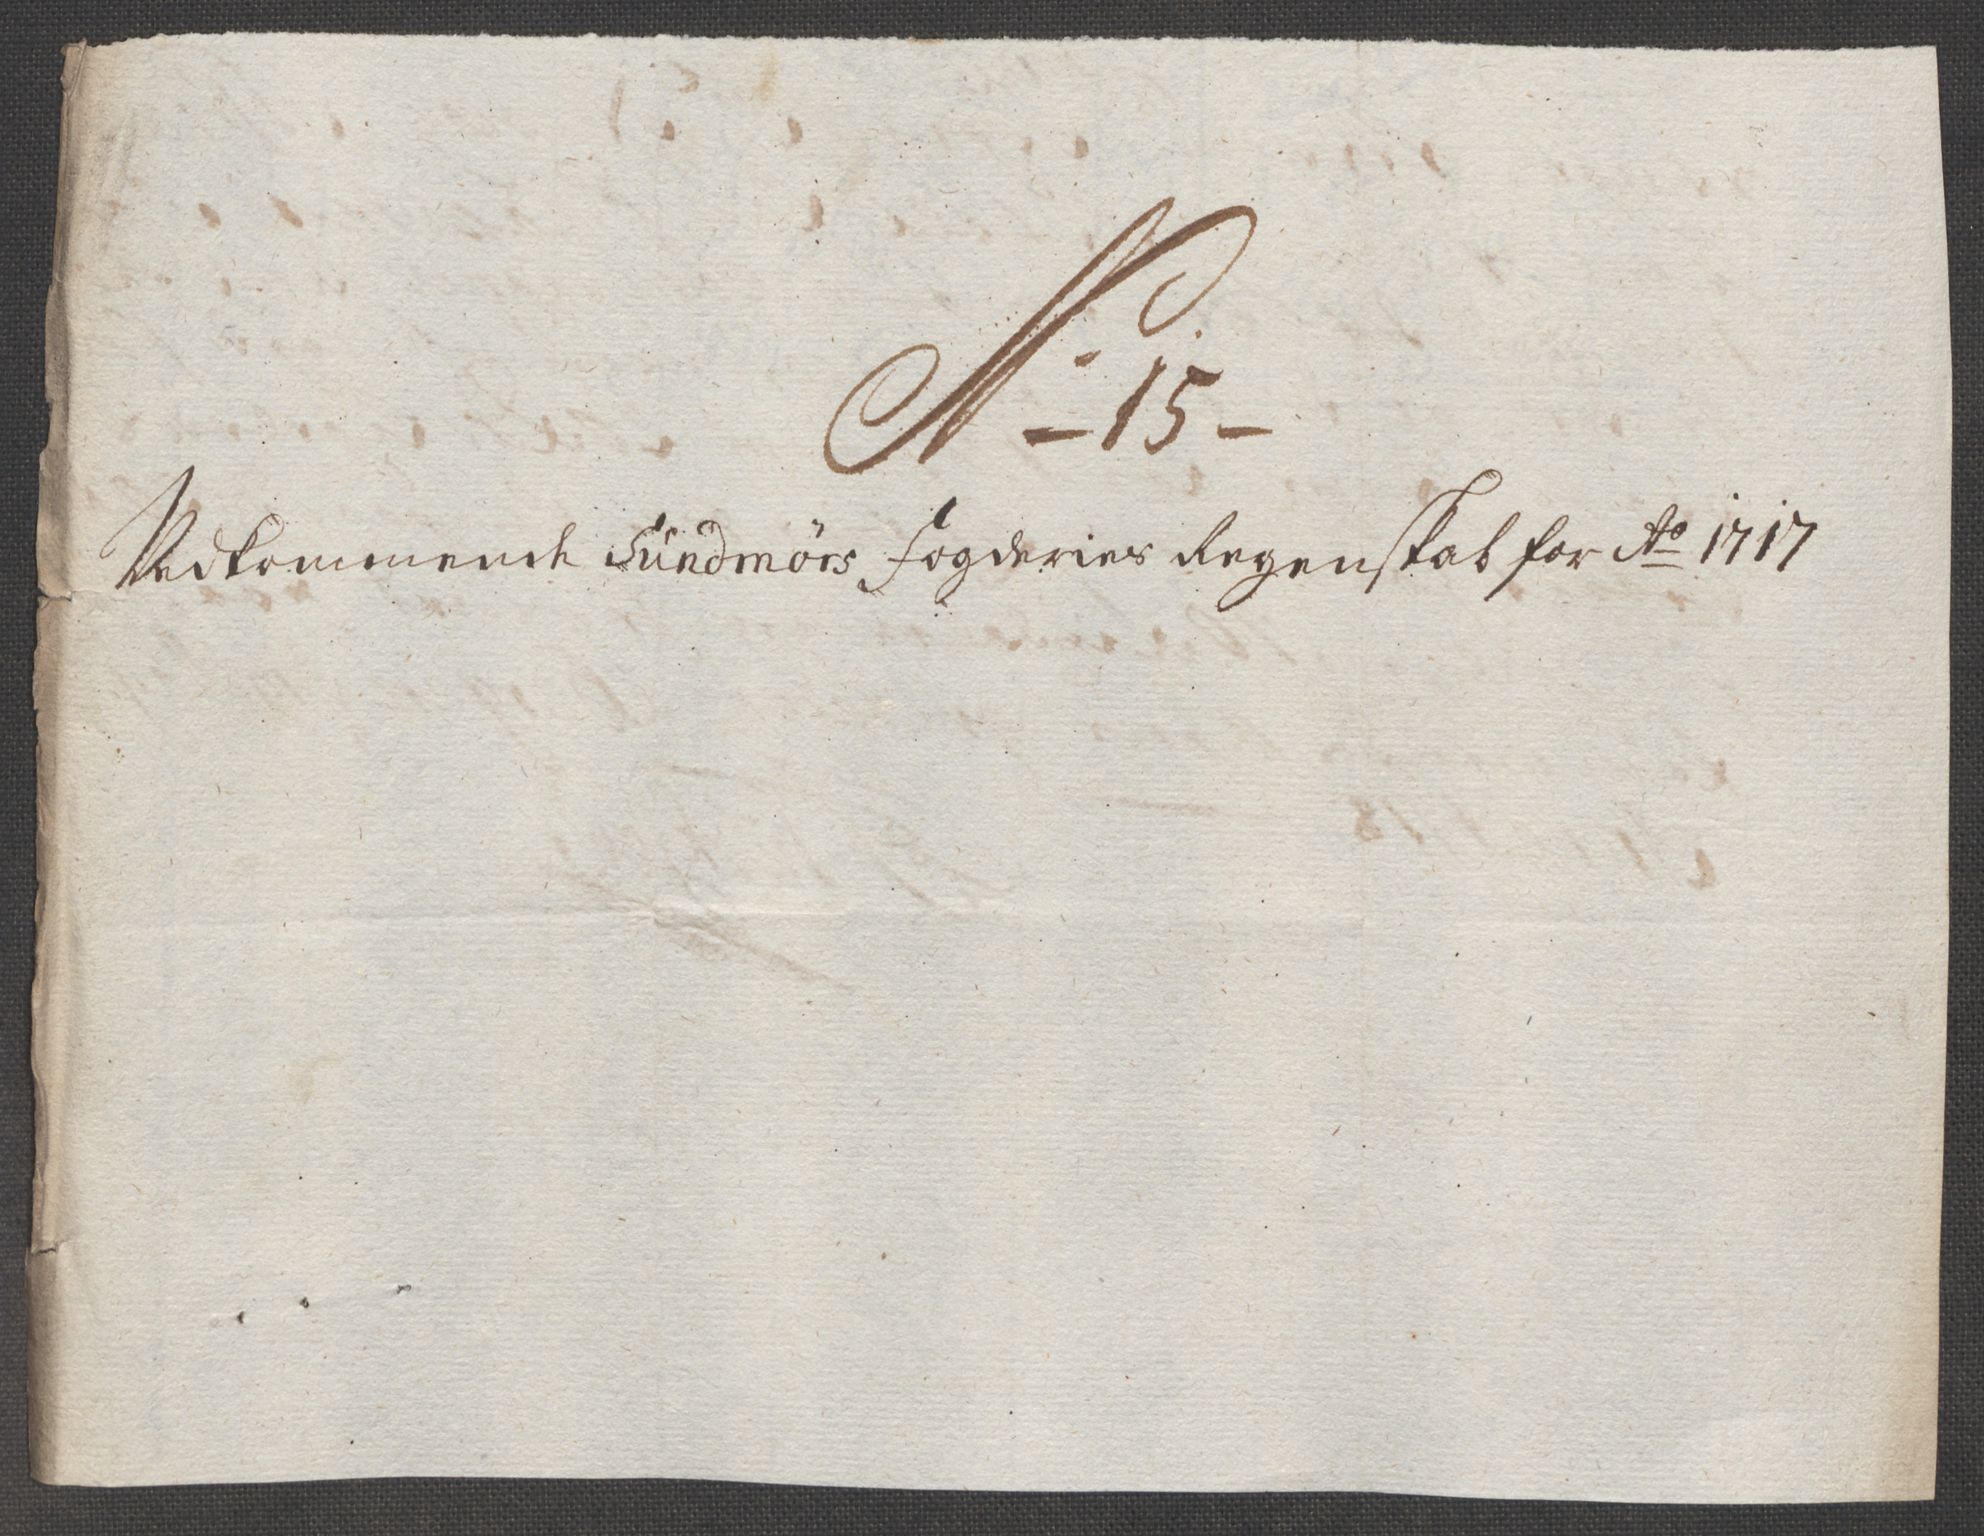 N: -15-
Vedkommende Sundmörs Fogderies Regenskab for Ao 1717